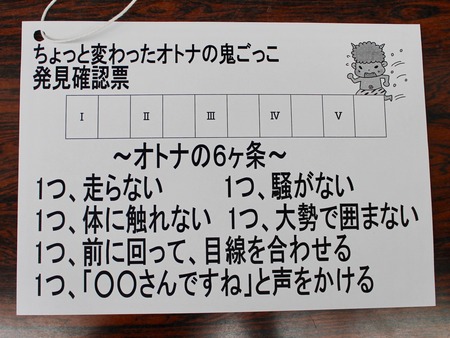 ちょっと変わったオトナの鬼ごっこ
発見確認票
Ⅰ Ⅱ Ⅲ Ⅳ Ⅴ
～オトナの6ヶ条～
1つ、走らない 1つ、騒がない
1つ、体に触れない 1つ、大勢で囲まない
1つ、前に回って、目線を合わせる
1つ、「〇〇さんですね」と声をかける